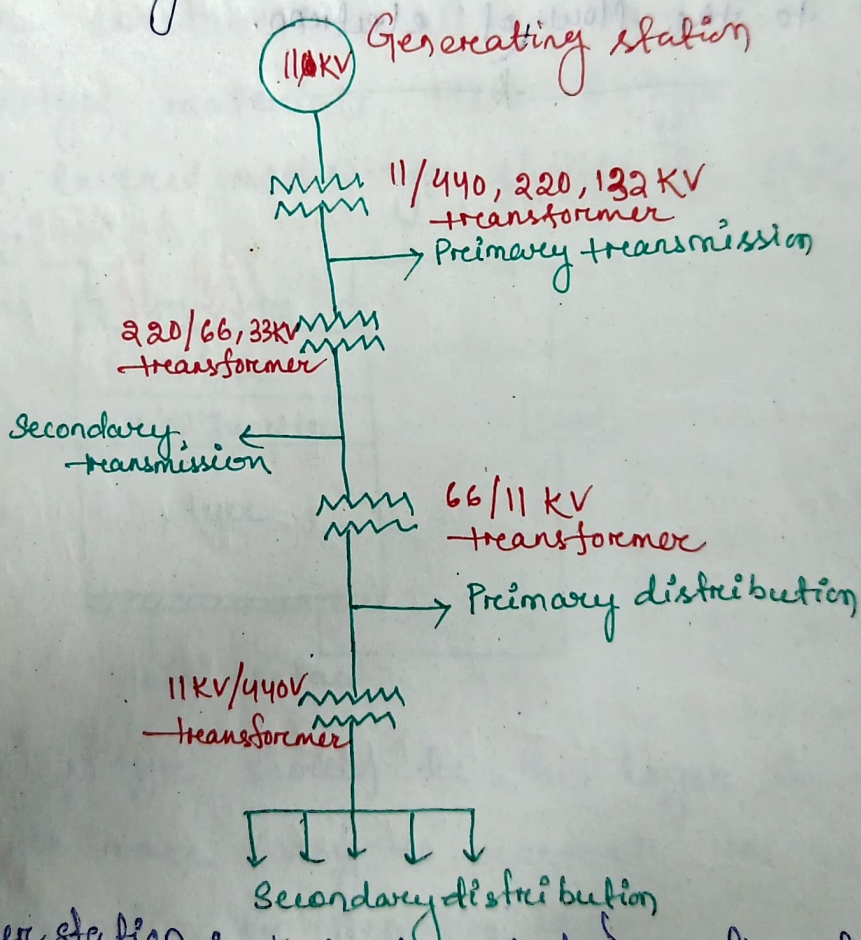 11 KV Generating station
11/440, 220, 132 KV
transformer
Primary transmission
220/66, 33KV
transformer
Secondary
transmission
66/11 KV
transformer
Primary distribution
11KV/440V
transformer
Secondary distribution
station